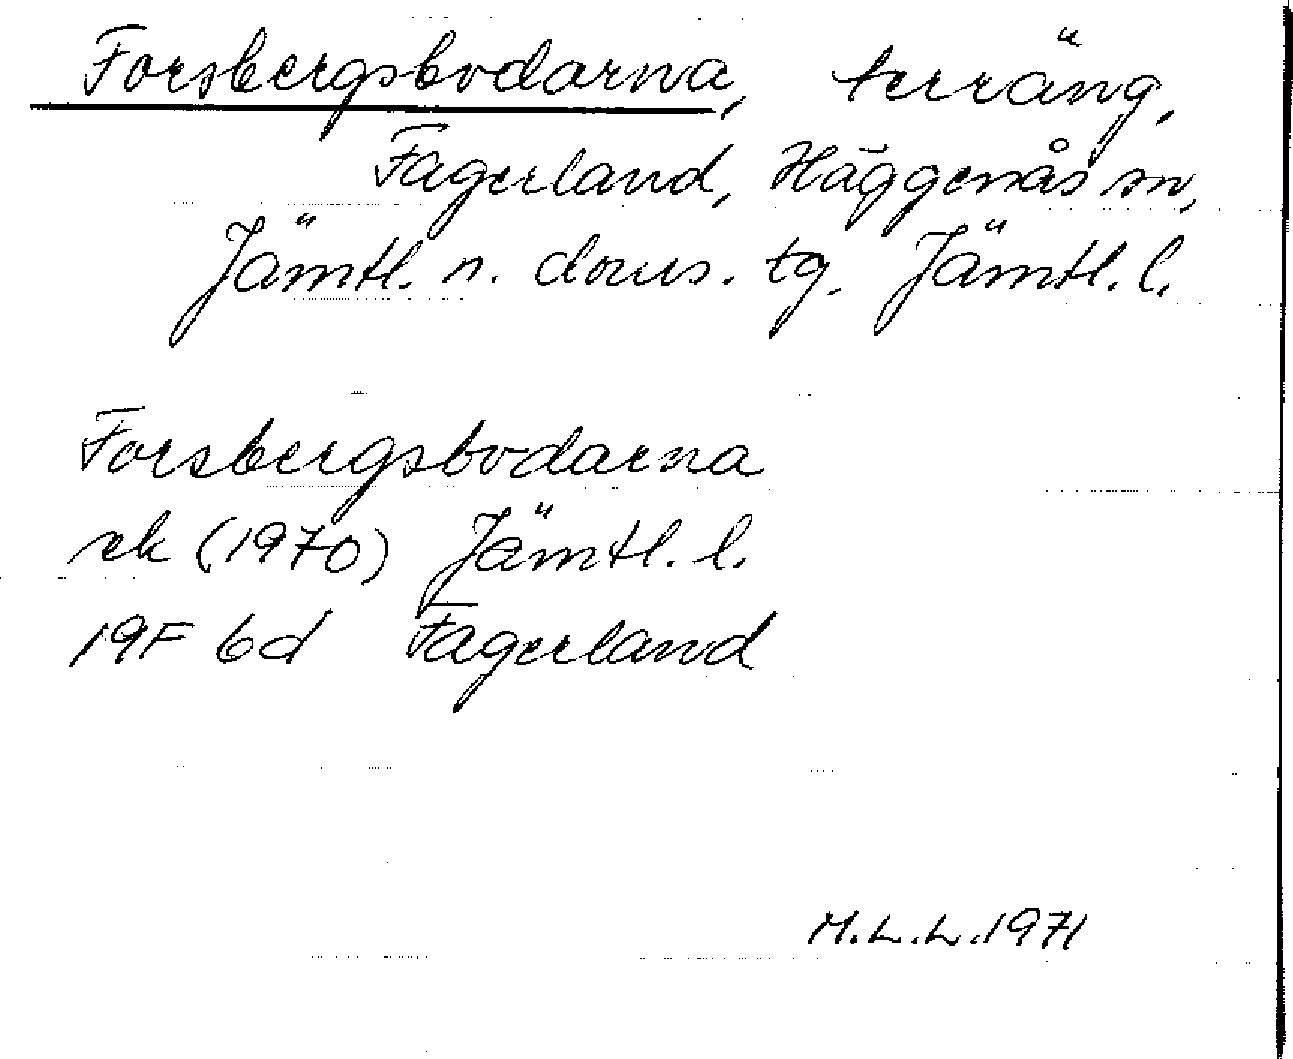 Forsbergsbodarna, terräng,
Fagerland, Häggenås sn,
Jämtl. n. doms. tg. Jämtl. l.
Forsbergsbodarna
ek (1970) Jämtl. l.
19F 6d Fagerland
M.L.L. 1971